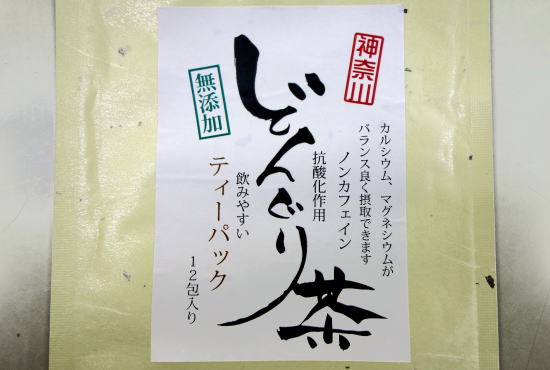 神奈川
カルシウム、マグネシウムが
バランス良く摂取できます
ノンカフェイン
抗酸化作用
どんぐり茶
無添加
飲みやすい
ティーパック
12包入り